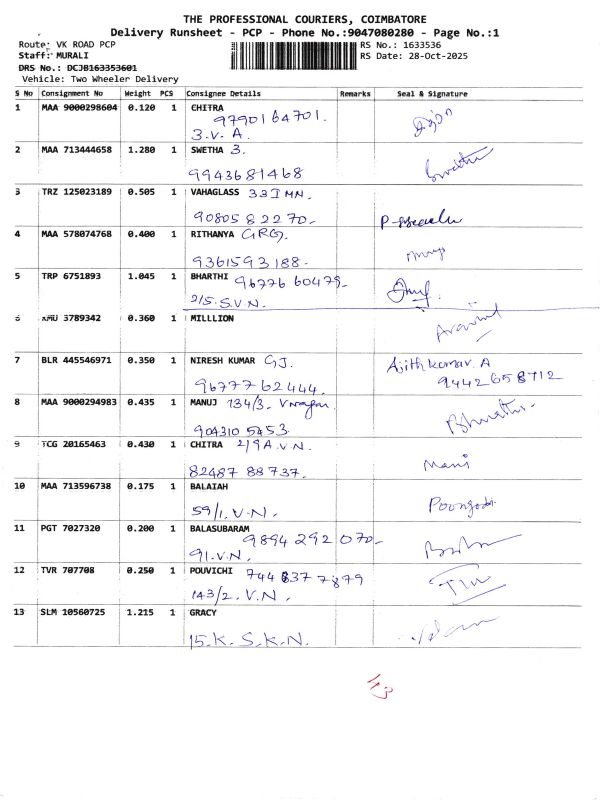 THE PROFESSIONAL COURIERS, COIMBATORE
Delivery Runsheet - PCP - Phone No.:9047080280 - Page No.:1
Route: VK ROAD PCP RS No.: 1633536
Staff: MURALI RS Date: 28-Oct-2025
DRS No.: DCJB163353601
Vehicle: Two Wheeler Delivery
S No Consignment No Weight PCS Consignee Details Remarks Seal & Signature
1 MAA 9000298604 0.120 1 CHITRA
9790164701.
3.V.A.
2 MAA 713444658 1.280 1 SWETHA 3.
9943681468
3 TRZ 125023189 0.505 1 VAHAGLASS 33IMN.
90805 82270-
4 MAA 578074768 0.400 1 RITHANYA GRG.
9361593188-
5 TRP 6751893 1.045 1 BHARTHI 96776 60479-
2/5.S.V.N.
6 3789342 0.360 1 MILLLION Aravind
7 BLR 445546971 0.350 1 NIRESH KUMAR GJ. Ajithkumar.A
9677762444. 9442658712
8 MAA 9000294983 0.435 1 MANUJ 134/3-
904310 5453
9 TCG 20165463 0.430 1 CHITRA 2/9A.V.N. Mani
82487 88737.
10 MAA 713596738 0.175 1 BALAIAH
59/1.V.N.
11 PGT 7027320 0.200 1 BALASUBARAM
9894 292 070-
91.V.N.
12 TVR 707708 0.250 1 POUVICHI 744 837 7879
143/2.V.N.
13 SLM 10560725 1.215 1 GRACY
15.K.S.K.N.